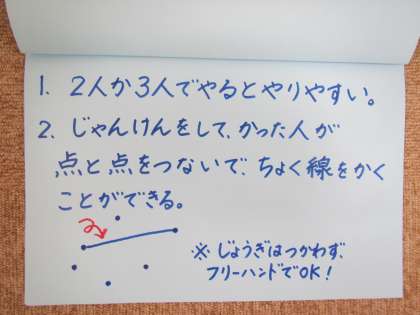 1. 2人か3人でやるとやりやすい。
2. じゃんけんをして、かった人が
点と点をつないで、ちょく線をかく
ことができる。
※じょうぎはつかわず、
フリーハンドでOK!